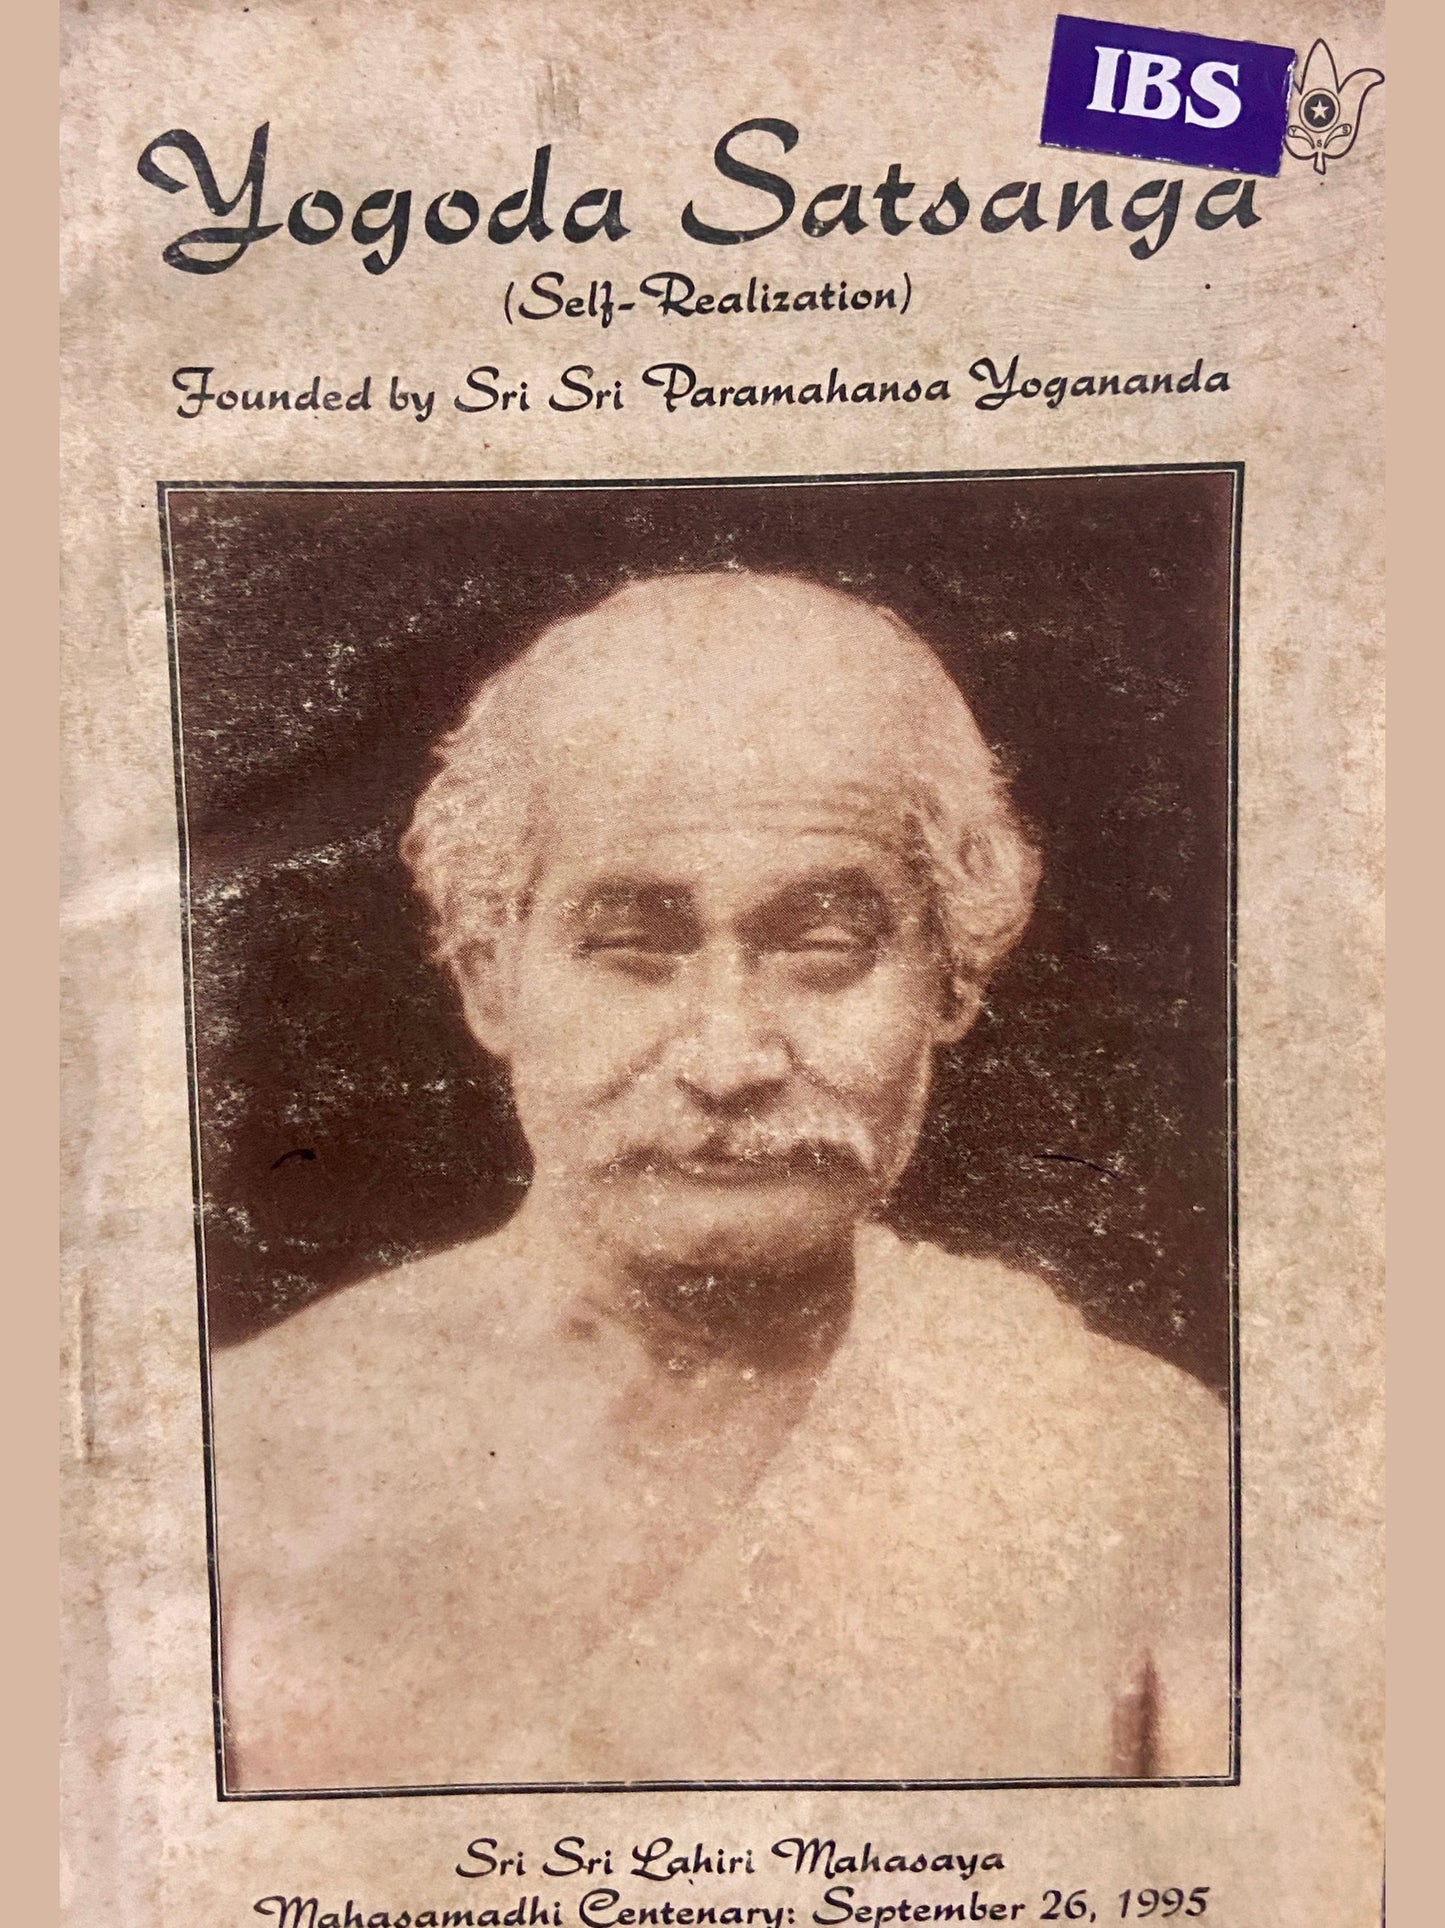 IBS
Y S S
Yogoda Satsanga
(Self-Realization)
Founded by Sri Sri Paramahansa Yogananda
Sri Sri Lahiri Mahasaya
Mahasamadhi Centenary: September 26, 1995